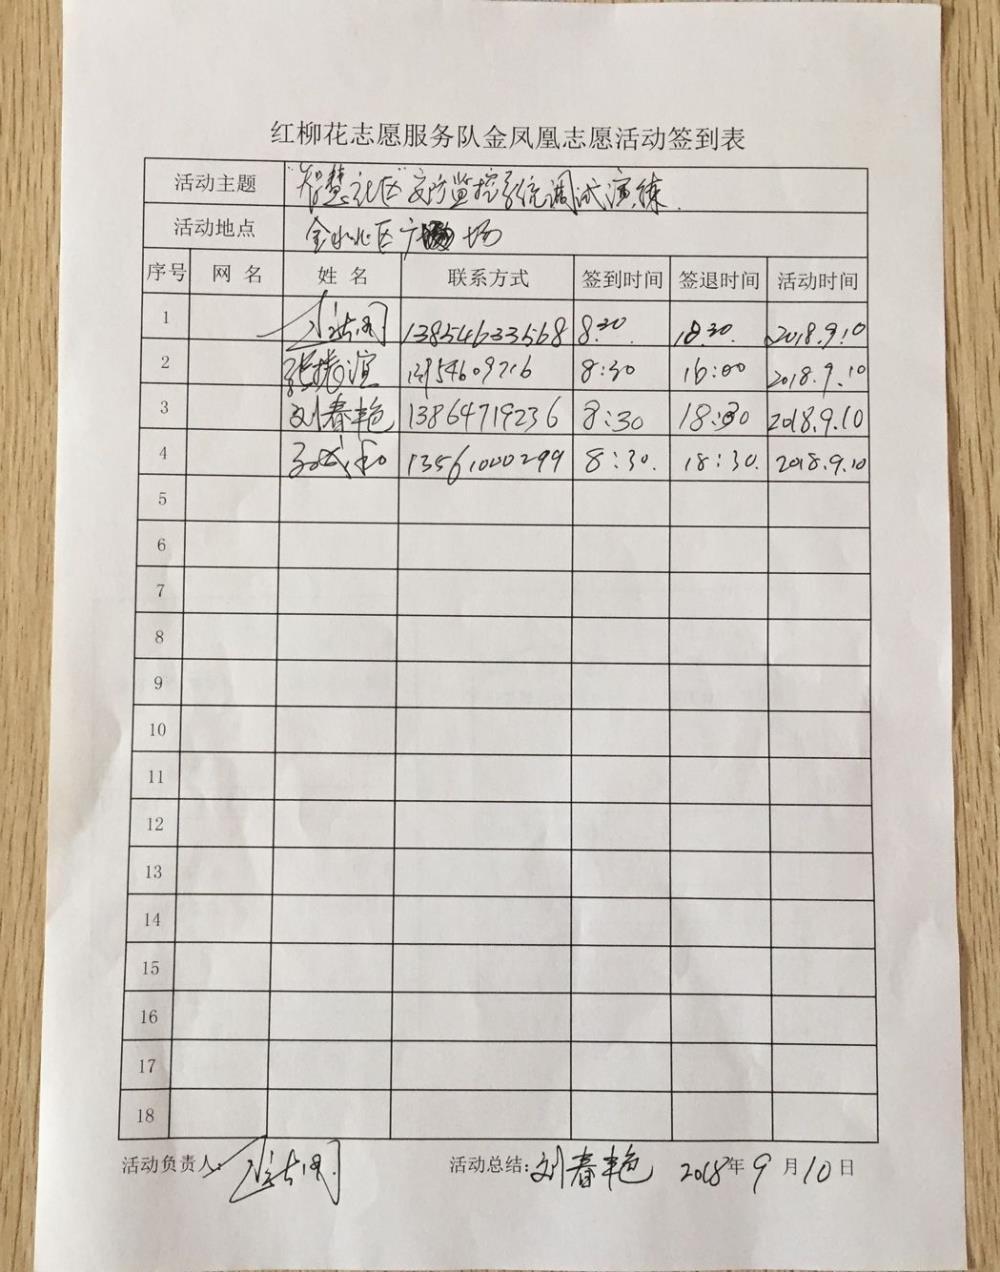 红柳花志愿服务队金凤凰志愿活动签到表
活动主题 "智慧社区"安防监控系统调试演练
活动地点 金水北区广场
序号 网 名 姓 名 联系方式 签到时间 签退时间 活动时间
1 13854633568 8:30 18:30 2018.9.10
2 8:30 16:00 2018.9.10
3 刘春艳 13864719236 8:30 18:30 2018.9.10
4 13561000299 8:30. 18:30. 2018.9.10
5
6
7
8
9
10
11
12
13
14
15
16
17
18
活动负责人: 活动总结: 刘春艳 2018年9月10日